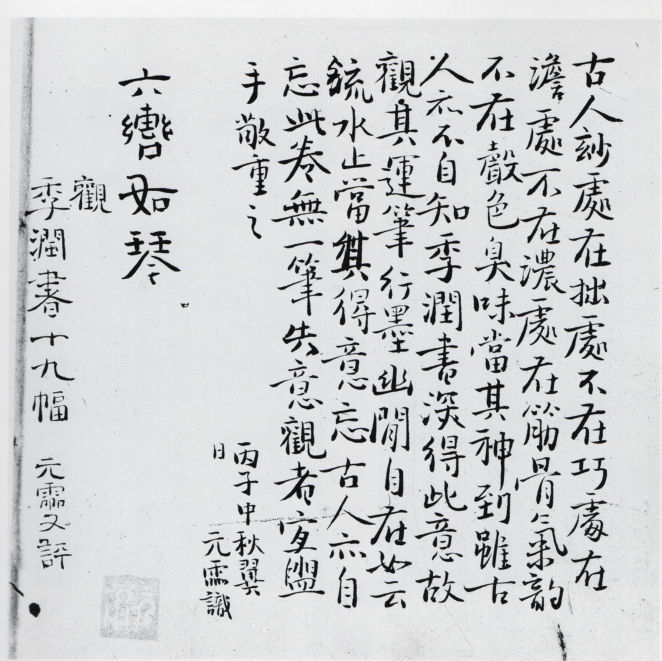 古人玅處在拙處不在巧處在
澹處不在濃處在筋骨氣韵
不在聲色臭味當其神到雖古
人亦不自知季潤書深得此意故
觀其運筆行墨幽閒自在如云
流水止當其得意忘古人亦自
忘此卷無一筆失意觀者宜盥
手敬重之
丙子中秋翼
日
元霈識
六轡如琴
觀
季潤書十九幅
元霈又評